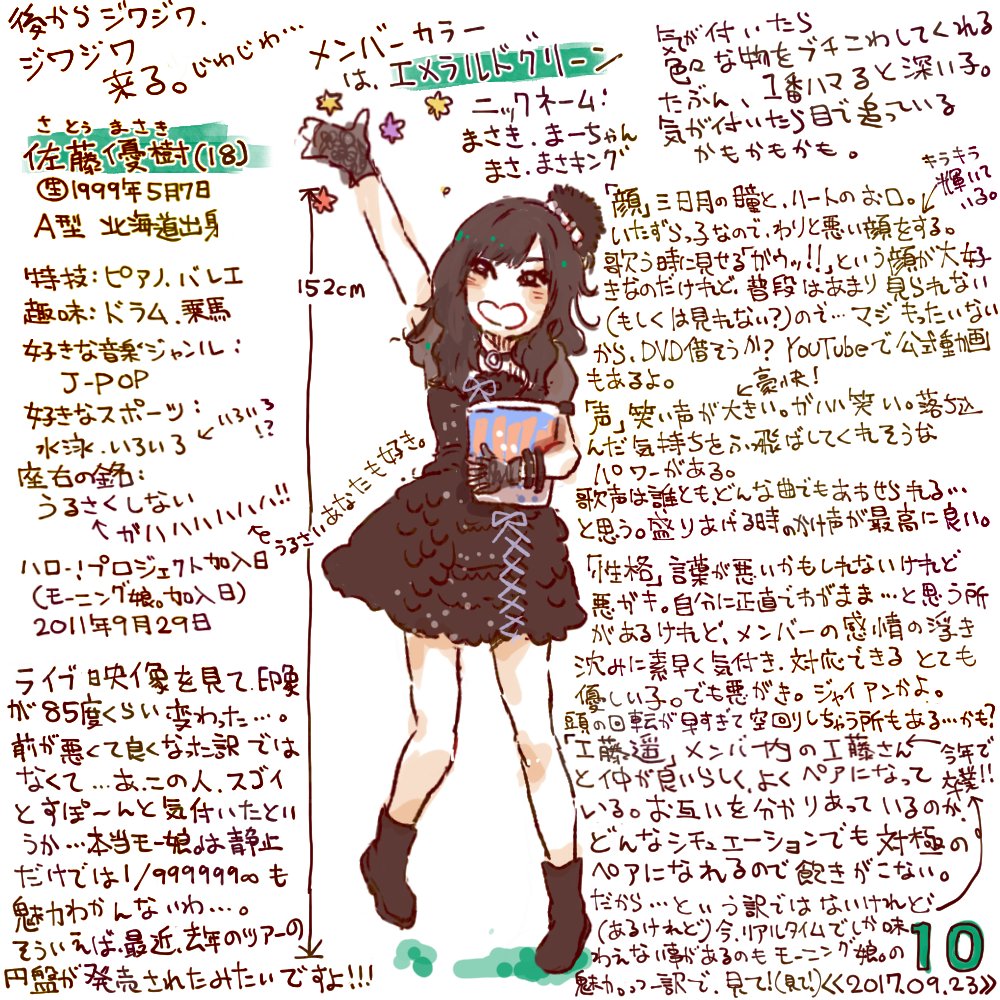 後からジワジワ、
ジワジワ
来る。じわじわ…
メンバーカラー
は、エメラルドグリーン
ニックネーム：
まさき、まーちゃん
まさ、まさキング
さとう まさき
佐藤優樹(18)
生1999年5月7日
A型 北海道出身
特技：ピアノ、バレエ
趣味：ドラム、乗馬
好きな音楽ジャンル：
J-POP
好きなスポーツ：
水泳、いろいろ
いろいろ!?
座右の銘：
うるさくしない
ガハハハハハハ!!
うるさいあなたも好き。
ハロー!プロジェクト加入日
(モーニング娘。加入日)
2011年9月29日
ライブ映像を見て、印象
が85度くらい変わった…。
前が悪くて良くなった訳では
なくて…あ、この人、スゴイ
とすぽーんと気付いたとい
うか…本当モー娘。は静止
だけでは1/9999999∞も
魅力わかんないわ…。
そういえば、最近、去年のツアーの
円盤が発売されたみたいですよ!!!
152cm
気が付いたら
色々な物をブチこわしてくれる
たぶん、1番ハマると深い子。
気が付いたら目で追っている
かもかもかも。
キラキラ
輝いて
いる。
「顔」三日月の瞳と、ハートのお口。
いたずらっ子なので、わりと悪い顔をする。
歌う時に見せる「がウッ!!」という顔が大好
きなのだけれど、普段はあまり見られない
(もしくは見れない?)ので…マジもったいない
から、DVD借そうか? YouTubeで公式動画
もあるよ。
豪快!
「声」笑い声が大きい。ガハハ笑い。落ち込
んだ気持ちをふっ飛ばしてくれそうな
パワーがある。
歌声は誰とも、どんな曲でもあわせられる…
と思う。盛りあげる時のかけ声が最高に良い。
「性格」言葉が悪いかもしれないけれど
悪がキ。自分に正直でわがまま…と思う所
があるけれど、メンバーの感情の浮き
沈みに素早く気付き、対応できるとても
優しい子。でも悪がき。ジャイアンかよ。
頭の回転が早すぎて空回りしちゃう所もある…かも?
「工藤遥」メンバー内の工藤さん
今年で
卒業!!
と仲が良いらしく、よくペアになって
いる。お互いを分かりあっているのが、
どんなシチュエーションでも対極の
ペアになれるので飽きがこない。
だから…という訳ではないけれど、
(あるけれど)今、リアルタイムでしか味
わえない事があるのもモーニング娘。の
魅力。って訳で、見て!(見て!)≪2017.09.23≫
10